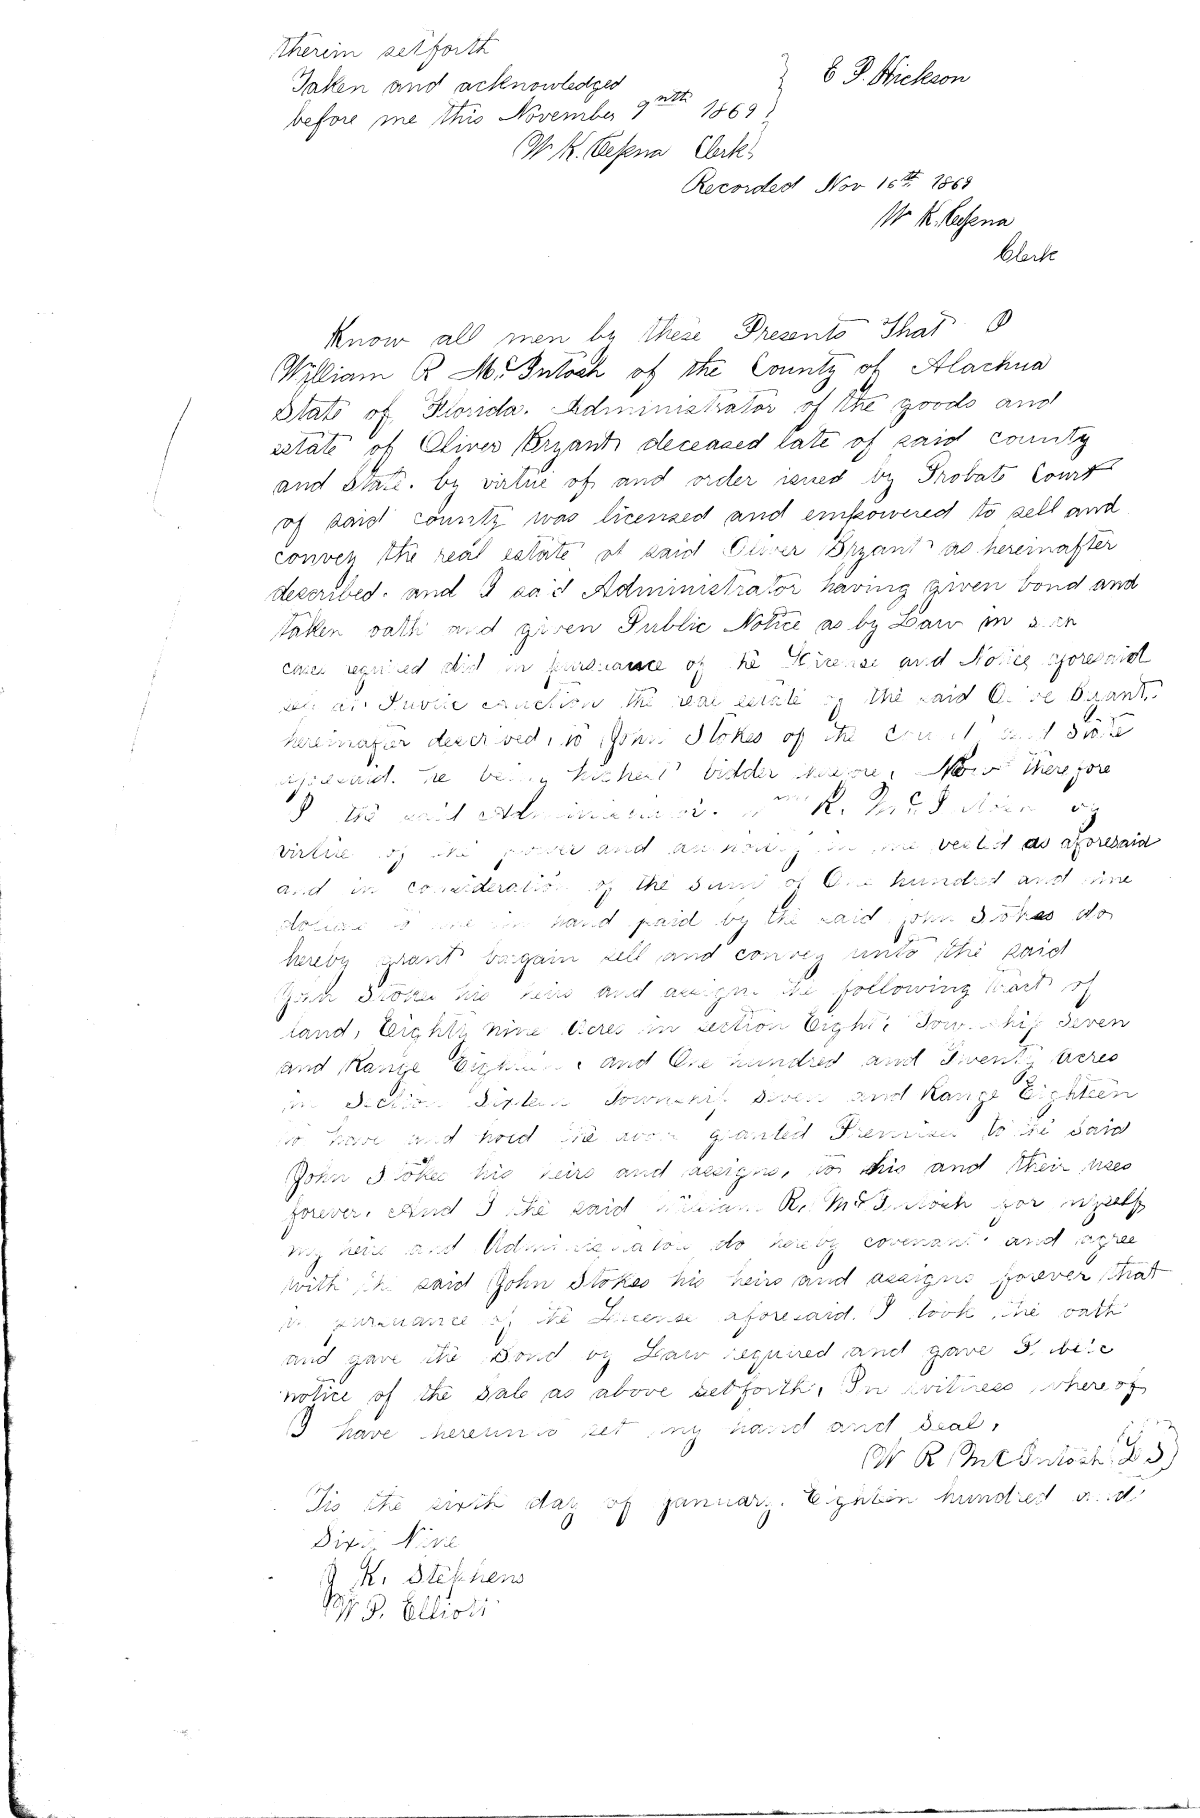 therein setforth
Taken and acknowledged
before me this November 9nth 1869
E P. Hickson
W K. Cessna Clerk
Recorded Nov 16th 1869
W K. Cessna
Clerk
Know all men by these Presents That I
William R McIntosh of the County of Alachua
State of Florida. Administrator of the goods and
estate of Oliver Bryant deceased late of said county
and State. by virtue of and order issued by Probate Court
of said county was licensed and empowered to sell and
convey the real estate of said Oliver Bryant as hereinafter
described. and I said Administrator having given bond and
taken oath and given Public Notice as by Law in such
cases required did in pursuance of the License and Notice aforesaid
sell at Public auction the real estate of the said Oliver Bryant
hereinafter described, to John Stokes of the County and State
aforesaid. he being highest bidder Now therefore
I the said Administrator. Wm R. McIntosh by
virtue of the power and authority in me vested as aforesaid
and in consideration of the sum of One hundred and nine
dollars to me in hand paid by the said John Stokes do
hereby grant bargain sell and convey unto the said
John Stokes his heirs and assigns the following tract of
land, Eighty nine Acres in section Eight, Township Seven
and Range Eighteen, and One hundred and Twenty Acres
in Section Sixteen Township Seven and Range Eighteen
To have and hold the above granted Premises to the said
John Stokes his heirs and assigns, to his and their uses
forever. And I the said William R. McIntosh for myself
my heirs and Administrators do hereby covenant and agree
with the said John Stokes his heirs and assigns forever that
in pursuance of the License aforesaid. I took the oath
and gave the Bond by Law required and gave Public
notice of the Sale as above setforth, In witness whereof
I have hereunto set my hand and Seal,
W R McIntosh (L S)
Tis the sixth day of january. Eighteen hundred and
Sixty Nine
J K. Stephens
W P. Elliott